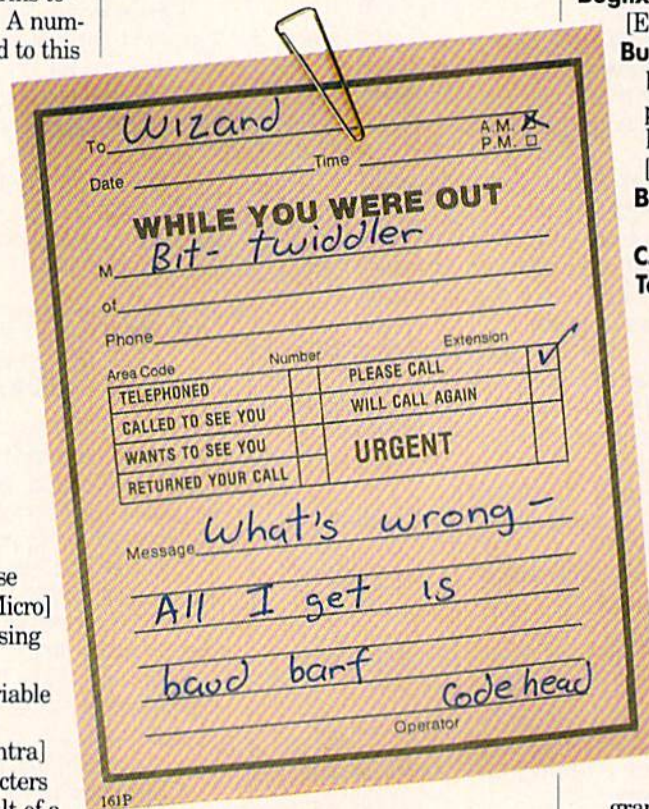 A num-
d to this
[E
Bu
B
C
T
To Wizard
A.M. X
P.M. □
Date Time
WHILE YOU WERE OUT
M Bit-twiddler
of
Phone
Area Code Number Extension
TELEPHONED PLEASE CALL ✓
CALLED TO SEE YOU WILL CALL AGAIN
WANTS TO SEE YOU URGENT
RETURNED YOUR CALL
Message What's wrong –
All I get is
baud barf
Codehead
Operator
161P
se
Micro]
sing
riable
ntra]
cters
lt of a
gran